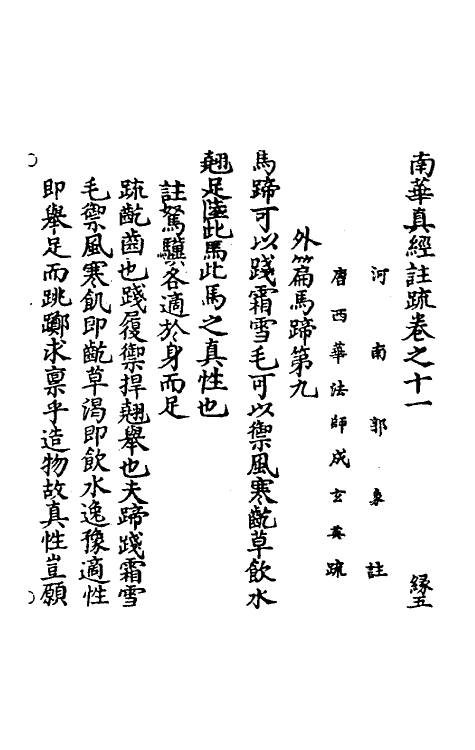 南華真經註疏卷之十一 緣五
河南郭象註
唐西華法師成玄英疏
外篇馬蹄第九
馬蹄可以踐霜雪毛可以禦風寒齕草飲水
翹足陸此馬此馬之真性也
註駑驥各適於身而足
疏齕齒也踐履禦捍翹舉也夫蹄踐霜雪
毛禦風寒飢即齕草渴即飲水逸豫適性
即舉足而跳躑求稟乎造物故真性豈願